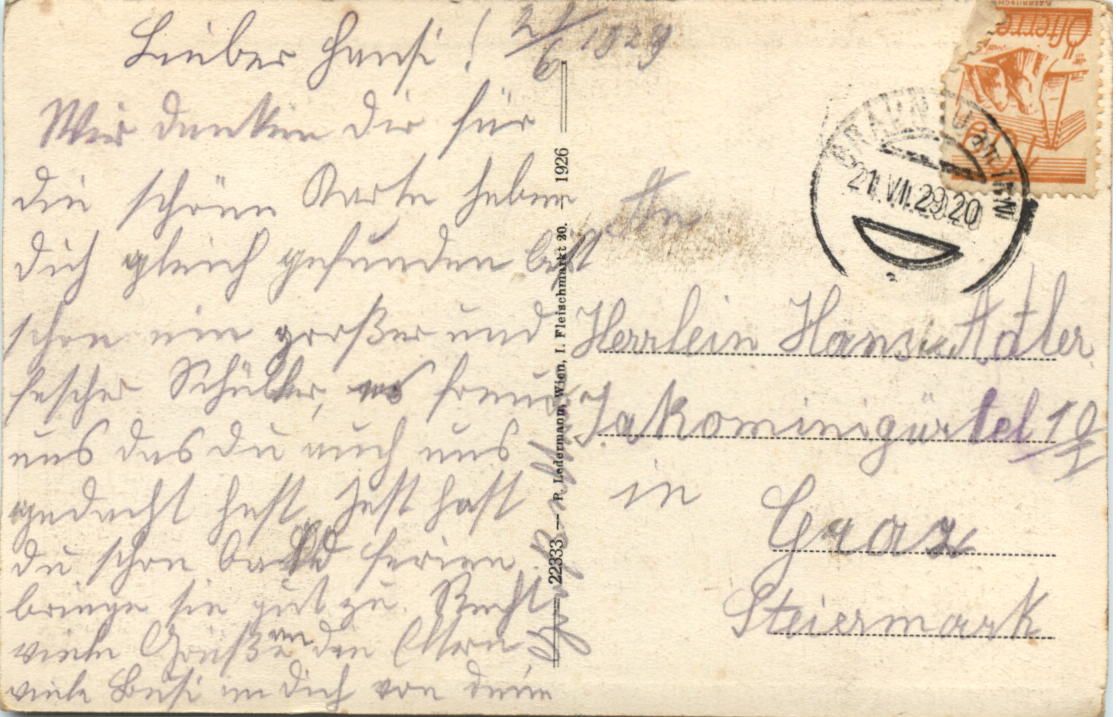 Lieber Hansi! 21/6 1929
Wir danken Dir für
die schöne Karte haben
Dich gleich gefunden bist
schon ein großer und
fescher Schüller, es freud
uns das du auch uns
gedacht hast. Jest hast
du schon bald Ferien,
bringe sie gut zu. Recht
viele Grüße an den Eltern
viele Busi an Dich von deine
22333 — P. Ledermann, Wien, I. Fleischmarkt 20. 1926
Österre
BRAUNAU AM INN
21.VI.29.20
An
Herrlein Hans Adler
Jakominigürtel 19/I
in
Graz
Steiermark